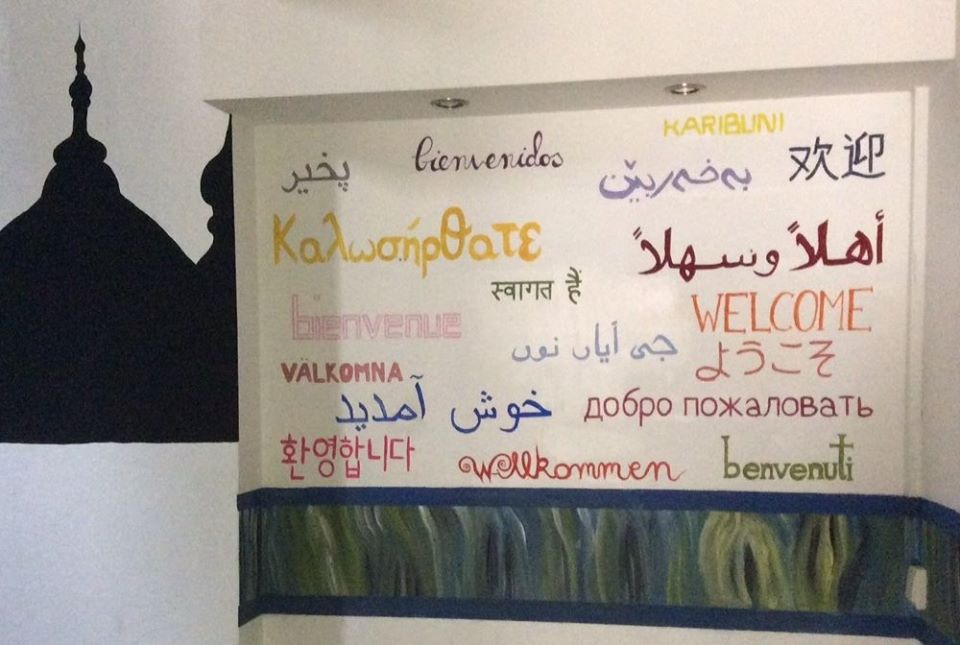 KARIBUNI
پخیر
bienvenidos
بەخەربێن
欢迎
Καλωσήρθατε
أهلاً وسهلاً
स्वागत हैं
WELCOME
bienvenue
جی آیاں نوں
ようこそ
VÄLKOMNA
خوش آمدید
добро пожаловать
환영합니다
Willkommen
benvenuti